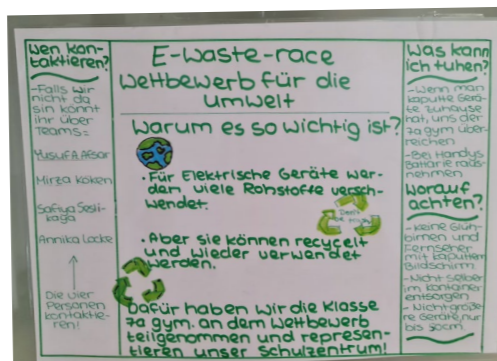 Wen kon-
taktieren?
-Falls wir
nicht da
sin könnt
ihr über
Teams:
Yusuf A. Afsar
Mirza Köken
Annika Locke
Die vier
Personen
kontaktie-
ren!
E-Waste-race
Wettbewerb für die
Umwelt
Warum es so wichtig ist?
• Für Elektrische Geräte wer-
den viele Rohstoffe versch-
wendet.
• Aber sie können recycelt
und wieder verwendet
werden.
Dafür haben wir die Klasse
7a gym. an dem Wettbewerb
teilgenommen und represen-
tieren unser Schulzentrum!
Was kann
ich tuhen?
-Wenn man
kaputte Gerä-
te Zuhause
hat, uns der
7a gym über-
reichen
-Bei Handys
Batterie raus-
nehmen
Worauf
achten?
-keine Glüh-
birnen und
Fernseher
mit kaputtem
Bildschirm
-Nicht selber
im kontainer
entsorgen
-Nicht größe-
re Geräte, nur
bis 50cm